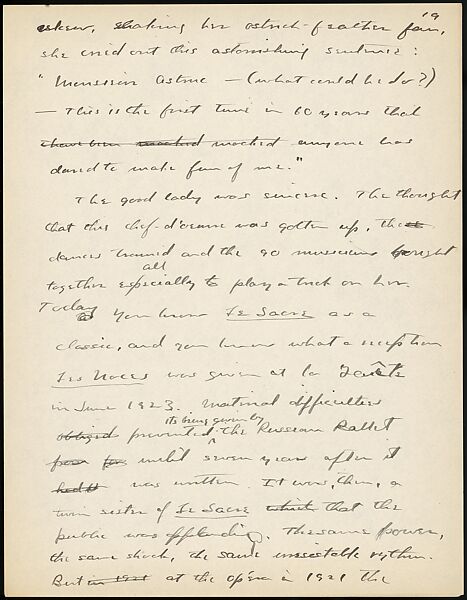 19
askew, shaking her ostrich-feather fan,
she cried out this astonishing sentence:
"Monsieur Astruc — (what could he do?)
— This is the first time in 60 years that
I have been mocked mocked anyone has
dared to make fun of me."
The good lady was sincere. The thought
that this chef-d'oeuvre was gotten up, the
dancers trained and the 90 musicians brought
all
together especially to play a trick on her.
Today
You know Le Sacre as a
classic, and you know what a reception
Les Noces was given at la Gaîté
in June 1923. Material difficulties
its being given by
obliged prevented the Russian Ballet
until seven years after it
had was written. It was, then, a
twin sister of Le Sacre which that the
public was applauding. The same power,
the same shock, the same irresistable rythm.
But in 1921 at the opéra in 1921 the